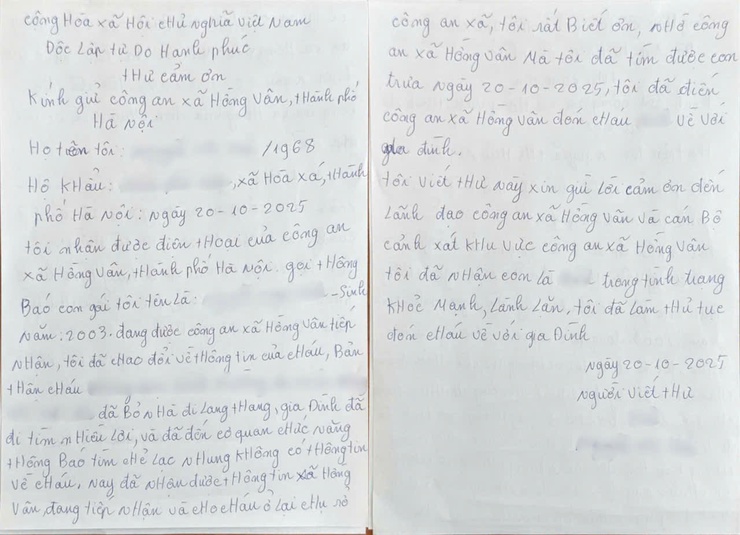 cộng Hòa xã Hội cHủ nghĩa việt Nam
Độc Lập tự Do Hạnh phúc
tHư cảm ơn
Kính gửi công an xã Hồng Vân, tHành phố
Hà Nội
Họ tên tôi: /1968
Hộ KHẩu: , xã Hòa xá, tHành
phố Hà Nội: ngày 20-10-2025
tôi nhận được điện tHoại của công an
xã Hồng Vân, tHành phố Hà Nội. gọi tHông
Báo con gái tôi tên Là: - Sinh
Năm: 2003. đang được công an xã Hồng Vân tiếp
NHận, tôi đã cHao đổi về tHông tin của cHáu, Bản
tHân cHáu
đã Bỏ NHà đi Lang tHang, gia Đình đã
đi tìm nHiều Lơi, và đã đến cơ quan cHức Năng
tHông Báo tìm tHể Lạc NHưng KHông có tHông tin
về cHáu, Nay đã NHận được tHông tin xã Hồng
Vân, đang tiếp NHận và cHo cHáu ở Lại tHụ sở
công an xã, tôi rất Biết ơn, NHờ công
an xã Hồng Vân Mà tôi đã tìm được con
trưa Ngày 20-10-2025, tôi đã điến
công an xã Hồng Vân đón cHáu về với
gia đình.
tôi viết tHư này xin gửi Lời cảm ơn đến
Lãnh đạo công an xã Hồng Vân và cán Bộ
cảnh xát KHu vực công an xã Hồng Vân
tôi đã NHận con Là trong tình trạng
KHOẻ Mạnh, Lành Lặn, tôi đã Làm tHủ tục
đón cHáu về với gia Đình
Ngày 20-10-2025
Người viết tHư